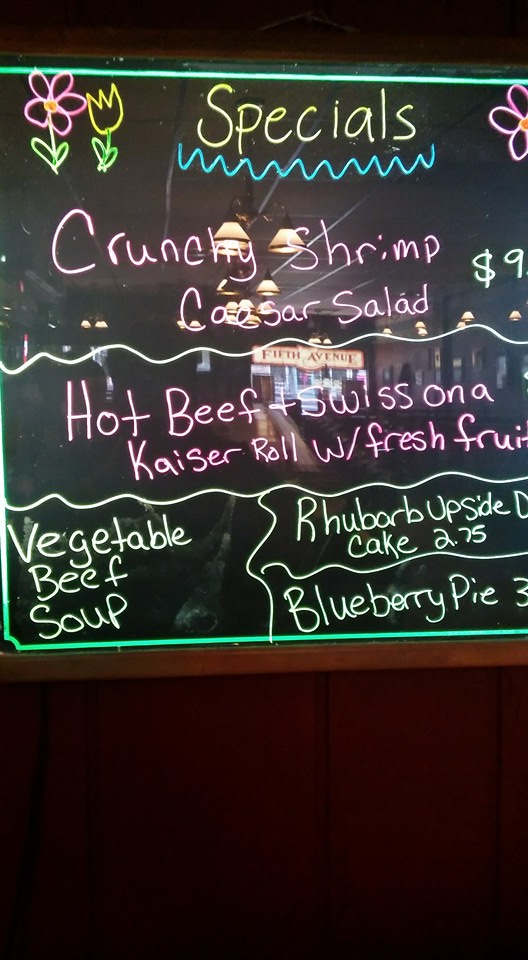 Specials
Crunchy Shrimp
$9.
Caesar Salad
FIFTH AVENUE
Hot Beef + Swiss on a
Kaiser Roll w/fresh fruit
Vegetable
Beef
Soup
Rhubarb Upside D
Cake 2.75
Blueberry Pie 3